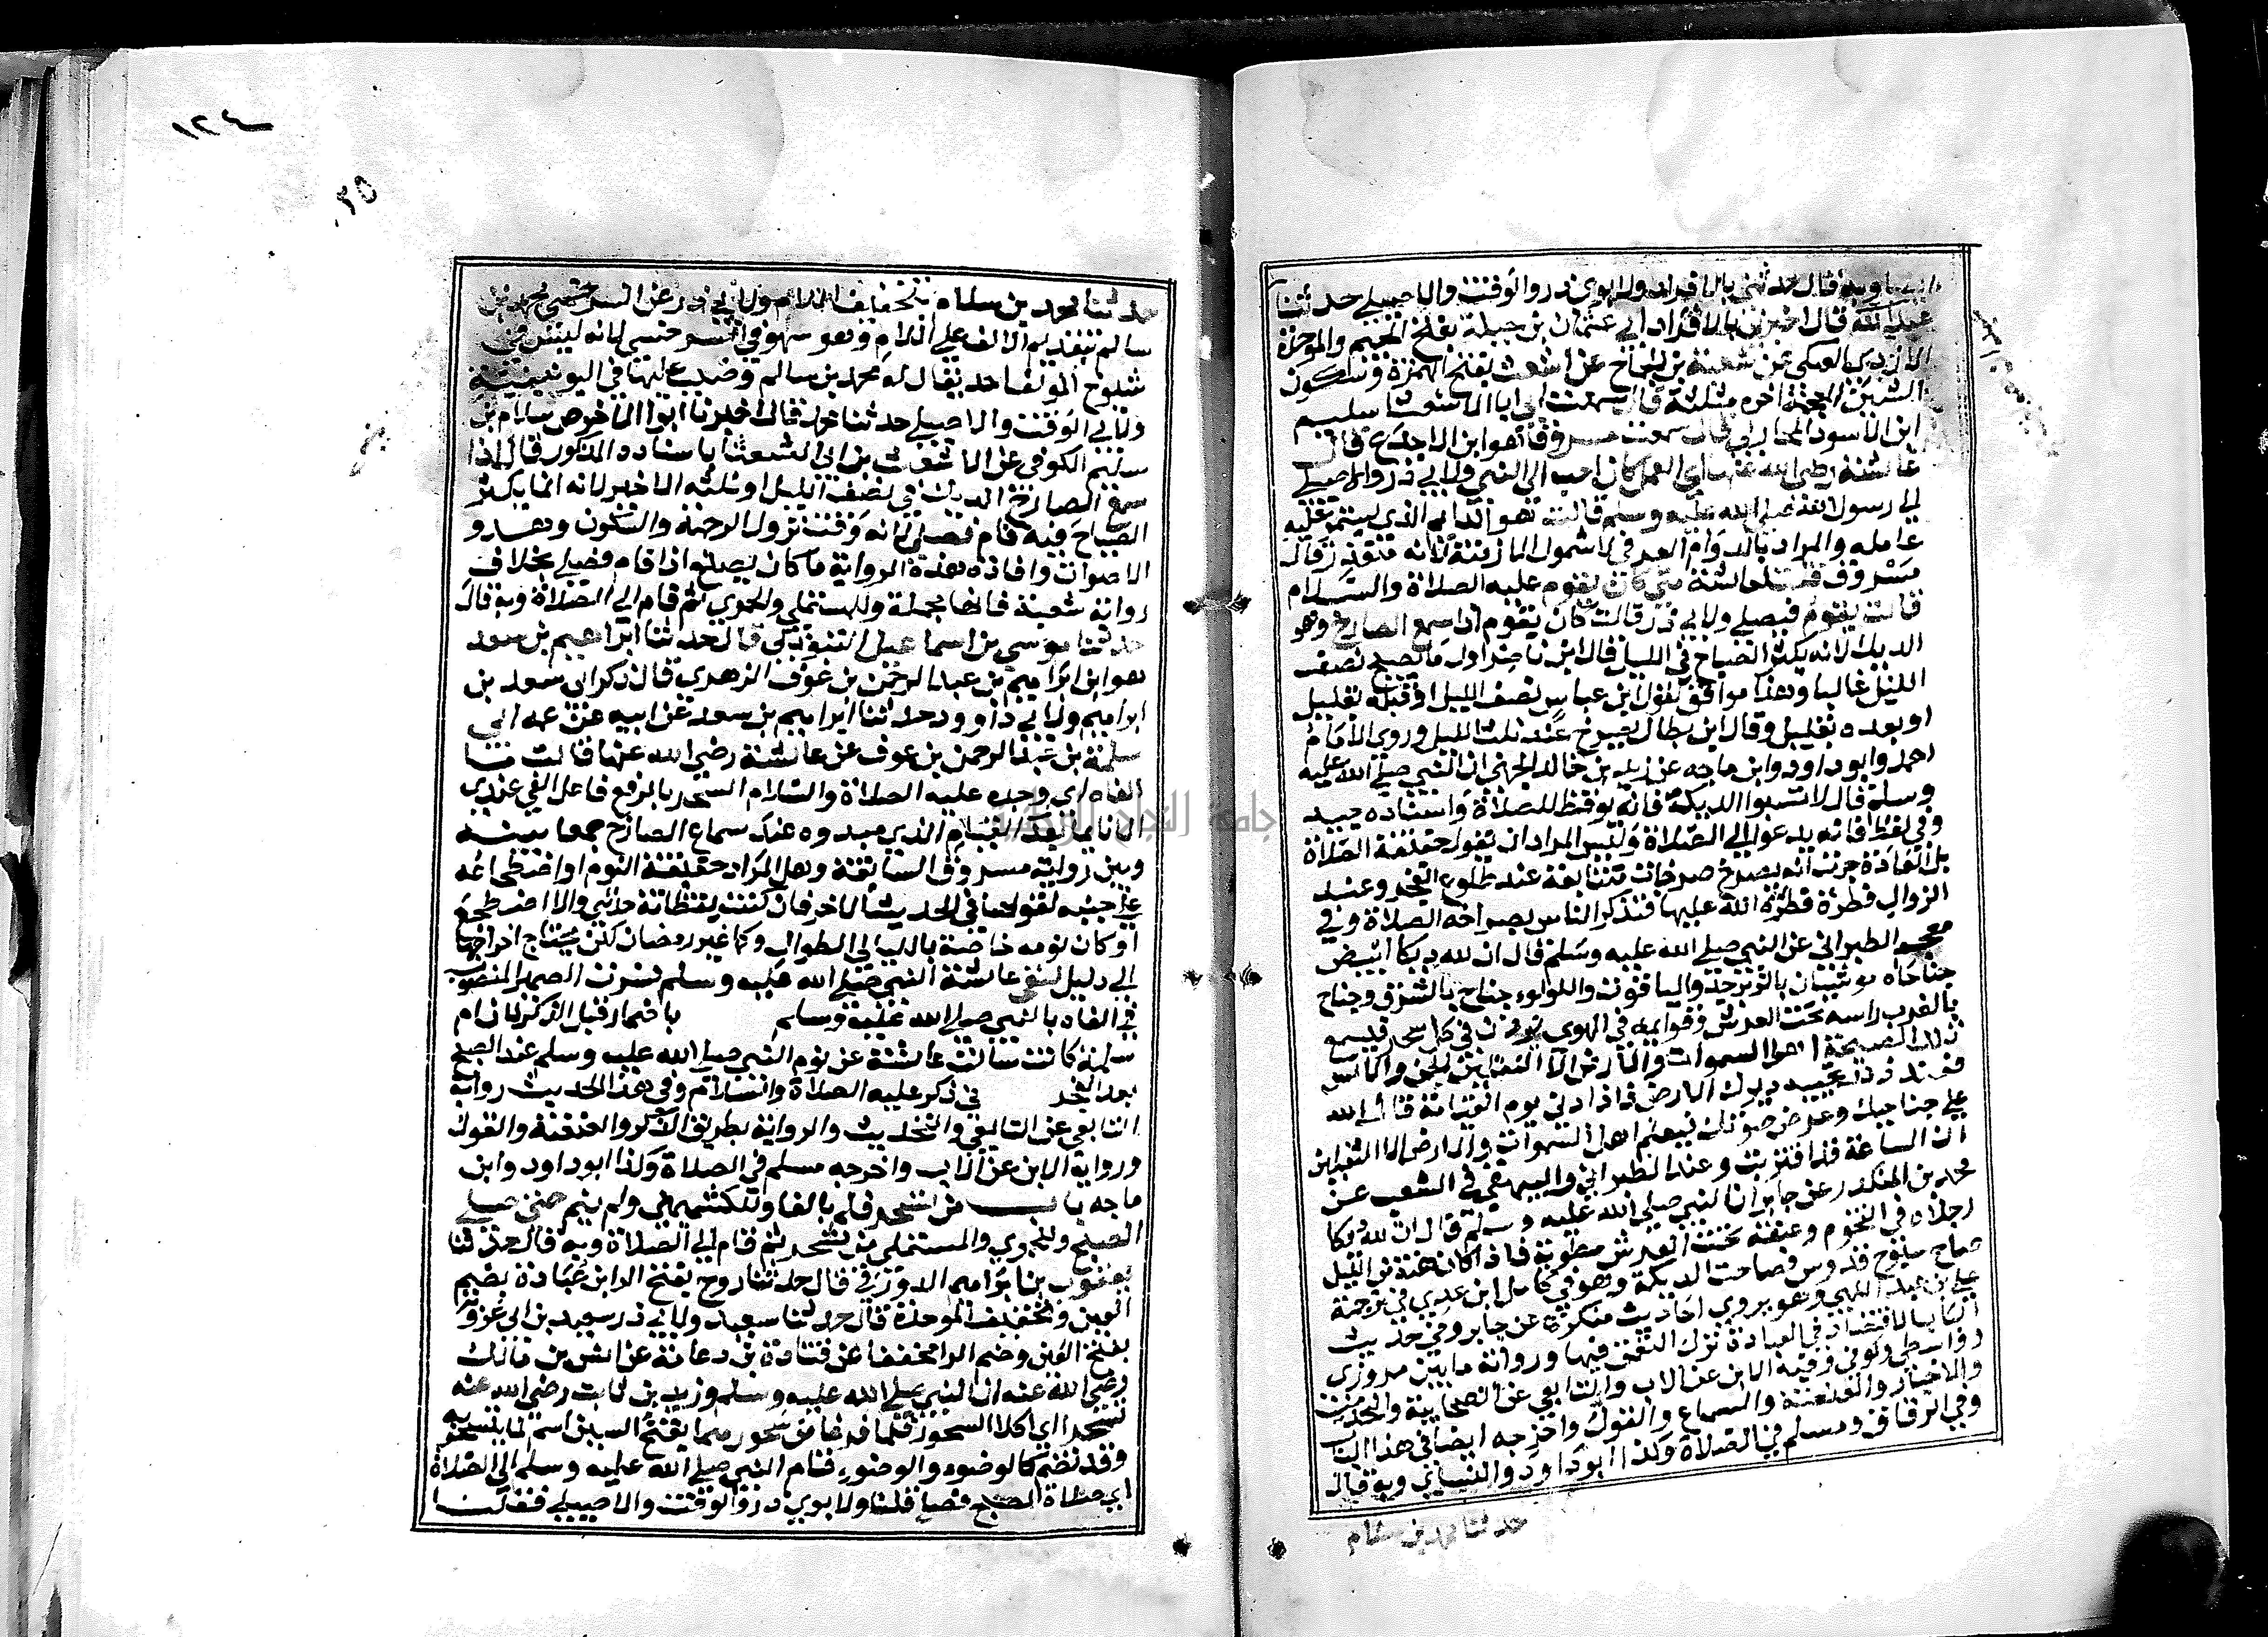 وبه قال حدثني بالافراد ولابوي ذر والوقت والاصيلي حدثنا
عبد الله قال اخبرني بالافراد ابي عثمان بن جبلة بفتح الجيم والموحدة
الازدي العتكي عن شعبة بن الحجاج عن اشعث بفتح الهمزة وسكون
الشين المعجمة اخره مثلثة قال سمعت ابي ابا الشعثا سليم
ابن الاسود المحاربي قال سمعت مسروقا هو ابن الاجدع قال
عائشة رضي الله عنها اي العمل كان احب الى النبي ولابي ذر والاصيلي
الى رسول الله صلى الله عليه وسلم قالت هو الدايم الذي يستمر عليه
عامله والمراد بالدوام العرفي لا شمول الازمنة لانه متعذر قال
مسروق قلت لعائشة متى كان يقوم عليه الصلاة والسلام
قالت يقوم فيصلي ولابي ذر قالت كان يقوم اذا سمع الصارخ وهو
الديك لانه يكثر الصياح في الليل قال ابن ناصر اول ما يصيح نصف
الليل غالبا وهذا موافق لقول ابن عباس نصف الليل او قبله بقليل
او بعده بقليل وقال ابن بطال يصرخ عند ثلث الليل وروى الامام
احمد وابو داود وابن ماجه عن زيد بن خالد الجهني ان النبي صلى الله عليه
وسلم قال لا تسبوا الديك فانه يوقظ للصلاة واسناده جيد
وفي لفظ فانه يدعوا الى الصلاة وليس المراد ان يقول حقيقة الصلاة
بل العادة جرت انه يصرخ صرخات متتابعة عند طلوع الفجر وعند
الزوال فطرة فطره الله عليها فتذكر الناس بصراخه الصلاة وفي
معجم الطبراني عن النبي صلى الله عليه وسلم قال ان لله ديكا ابيض
جناحاه موشيان بالزبرجد والياقوت واللولو جناح بالشرق وجناح
بالغرب راسه تحت العرش وقوايمه في الهوى يوذن في كل سحر فيسمع
تلك الصيحة اهل السموات والارض الا الثقلين الجن والانس
فعند ذلك تجيبه ديوك الارض فاذا دنى يوم القيامة قال الله
على جناحيك وغض صوتك فيعلم اهل السموات والارض الا الثقلين
ان الساعة قد اقتربت وعند الطبراني والبيهقي في الشعب عن
محمد بن المنكدر عن جابر ان النبي صلى الله عليه وسلم قال ان لله ديكا
رجلاه في التخوم وعنقه تحت العرش مطوية فاذا كان هنة من الليل
صاح سبوح قدوس فصاحت الديكة وهو في كامل ابن عدي في ترجمة
علي بن علي اللهبي وهو يروي احاديث منكرة عن جابر وفي حديث
الباب الاقتصاد في العبادة وترك التعمق فيها ورواته ما بين مروزي
وواسطي وكوفي وفيه الابن عن الاب والتابعي عن الصحابية والتحديث
والاخبار والعنعنة والسماع والقول واخرجه ايضا في هذا الباب
وفي الرقاق ومسلم في الصلاة وكذا ابو داود والنسائي وبه قال
حدثنا محمد بن سلام
١٢٤
٢٥
حدثنا محمد بن سلام بتخفيف اللام ولابي ذر عن السرخسي محمد بن
سالم بتقديم الالف على اللام وهو سهو من السرخسي لانه ليس في
شيوخ المولف احد يقال له محمد بن سالم وضبب عليها في اليونينية
ولابي الوقت والاصيلي حدثنا محمد قال اخبرنا ابو الاحوص سلام بن
سليم الكوفي عن الاشعث بن ابي الشعثا باسناده المذكور قال اذا
سمع الصارخ الديك في نصف الليل او ثلثه الاخير لانه انما يكثر
الصياح فيه قام فصلى لانه وقت نزول الرحمة والسكون وهدو
الاصوات وافادة هذه الرواية ما كان يصنع اذا قام فصلى بخلاف
رواية شعبة فانها مجملة وللمستملي والحموي ثم قام الى الصلاة وبه قال
حدثنا موسى بن اسماعيل التبوذكي قال حدثنا ابراهيم بن سعد
هو ابن ابراهيم بن عبد الرحمن بن عوف الزهري قال ذكر ابي سعد بن
ابراهيم ولابي داوود حدثنا ابراهيم بن سعد عن ابيه عن عمه ابي
سلمة بن عبد الرحمن بن عوف عن عائشة رضي الله عنها قالت ما
الفاه اي وجده عليه الصلاة والسلام السحر بالرفع فاعل الفى عندي
الا نايما بعد القيام الذي مبدوه عند سماع الصارخ جمعا بينه
وبين رواية مسروق السابقة وهل المراد حقيقة النوم او اضطجاعه
على جنبه لقولها في الحديث الاخر فان كنت يقظانة حدثني والا اضطجع
او كان نومه خاصة بالليالي الطوال وكما غير رمضان لكن يحتاج اخراجها
الى دليل تعني عائشة النبي صلى الله عليه وسلم فسرت الضمير المنصوب
في الفاه بالنبي صلى الله عليه وسلم باضمار قبل الذكر لان ام
سلمة كانت سالت عائشة عن نوم النبي صلى الله عليه وسلم عند الصبح
بعد الفجر في ذكر عليه الصلاة والسلام وفي هذا الحديث رواية
التابعي عن التابعي والتحديث والرواية بطريق الذكر والعنعنة والقول
ورواية الابن عن الاب واخرجه مسلم في الصلاة وكذا ابو داود وابن
ماجه باب من تسحر فلم بالفا وللكشميهني ولم ينم حتى صلى
الصبح وللحموي والمستملي من تسحر ثم قام الى الصلاة وبه قال حدثنا
يعقوب بن ابراهيم الدورقي قال حدثنا روح بفتح الرا ابن عبادة بضم
العين وتخفيف الموحدة قال حدثنا سعيد ولابي ذر سعيد بن ابي عروبة
بفتح العين وضم الرا مخففا عن قتادة بن دعامة عن انس بن مالك
رضي الله عنه ان النبي صلى الله عليه وسلم وزيد بن ثابت رضي الله عنه
تسحرا اي اكلا السحور فلما فرغا من سحورهما بفتح السين اسم لما يتسحر به
وقد تضم كالوضوء والوضوء قام النبي صلى الله عليه وسلم الى الصلاة
اي صلاة الصبح فصلى قلنا ولابوي ذر والوقت والاصيلي فقلنا
جامعة النجاح الوطنية